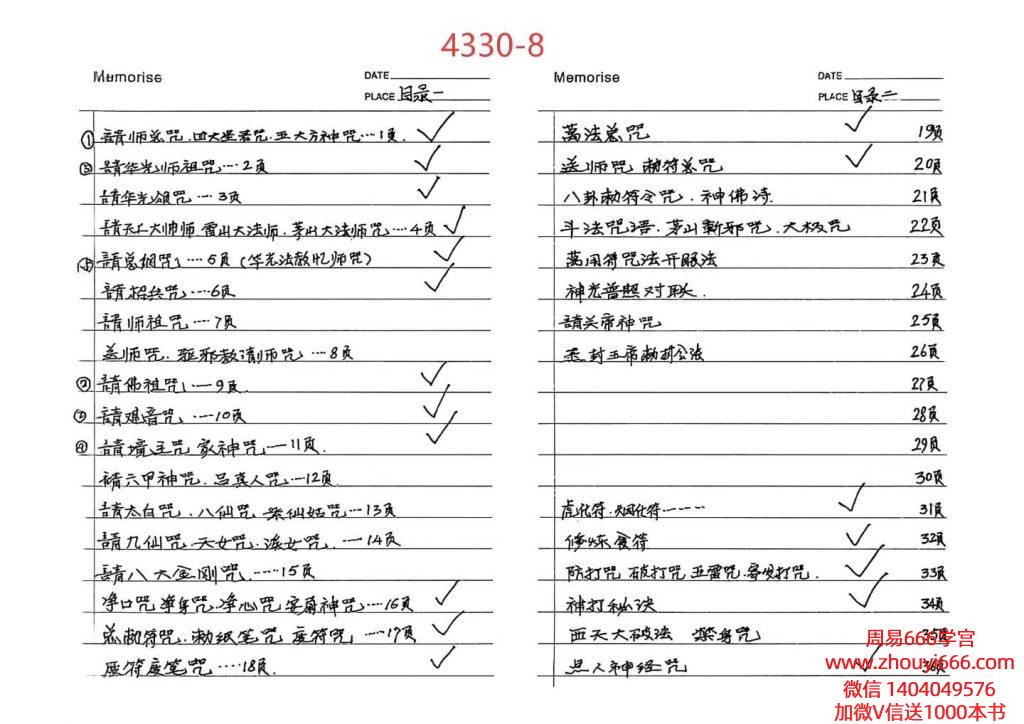 4330-8
Memorise
DATE
PLACE 目录一
① 請师总咒、四大圣君咒、五大方神咒····1頁
③ 請华光师祖咒····2頁
請华光頌咒····3頁
請天上大帅师、雷山大法师、茅山大法师咒····4頁
請总纲咒····5頁(华光法教忆师咒)
請招兵咒····6頁
請师祖咒····7頁
送师咒、驱邪教請师咒····8頁
② 請佛祖咒、····9頁
請观音咒····10頁
④ 請境主咒 家神咒····11頁
請六甲神咒、吕真人咒····12頁
請太白咒、八仙咒 紫仙姑咒····13頁
請九仙咒、天女咒、咒、····14頁
請八大金刚咒、····15頁
净口咒 净身咒、净心咒 安符神咒····16頁
总勅符咒、勅纸笔咒 座符咒····17頁
座符座笔咒····18頁
Memorise
DATE
PLACE 目录二
萬法总咒 19頁
送师咒 勅符总咒 20頁
八卦勅符令咒、神佛诗 21頁
斗法咒语、茅山斬邪咒、太极咒 22頁
萬用符咒法开眼法 23頁
神光普照对联、 24頁
請关帝神咒 25頁
封王帝勅封公法 26頁
27頁
28頁
29頁
30頁
虎化符、烟化符 31頁
修炼食符 32頁
防打咒 破打咒 五雷咒、打咒、 33頁
神打秘诀 34頁
西天大破法 禁身咒 35頁
点人神经咒 36頁
周易666学宫
www.zhouyi666.com
微信 1404049576
加微V信送1000本书